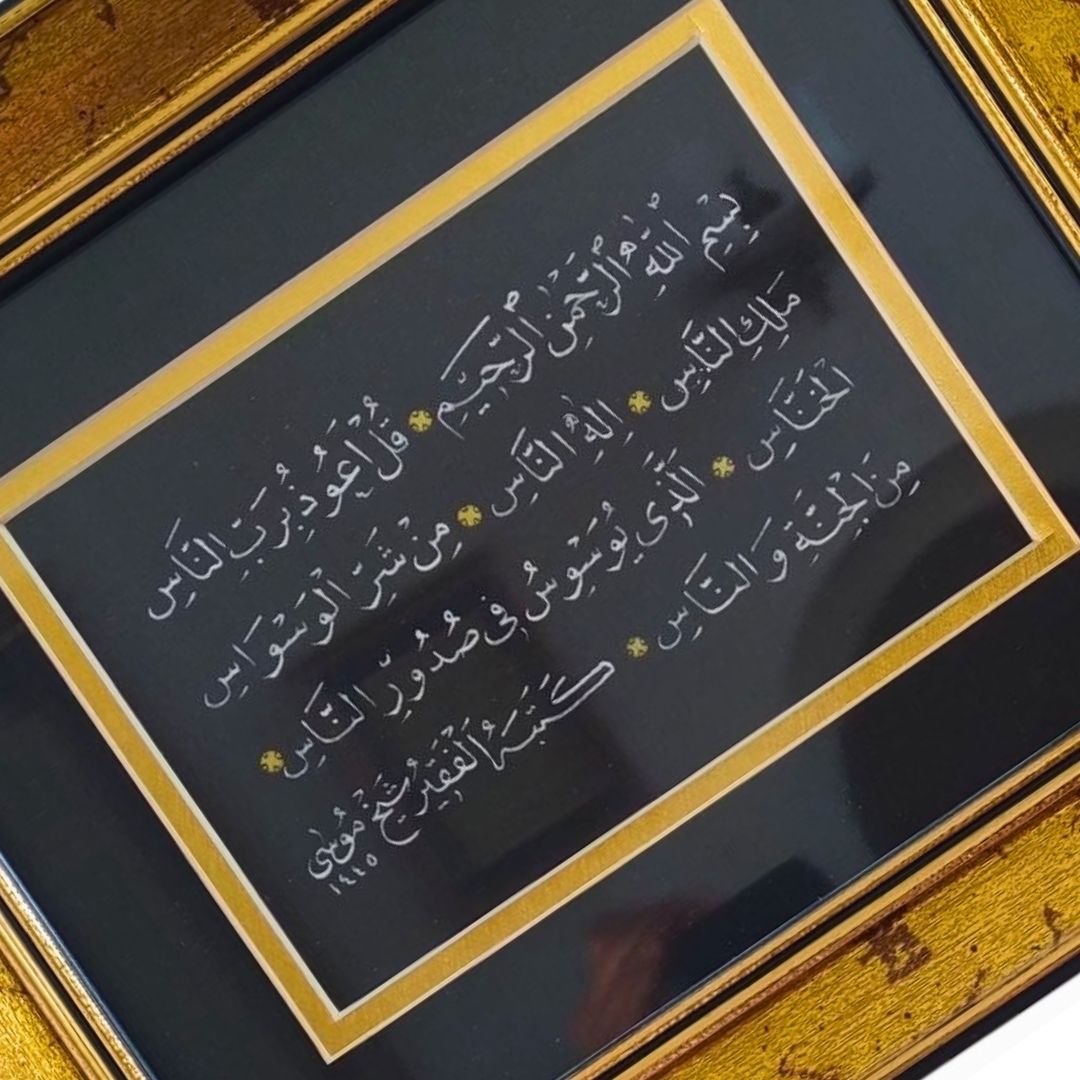 بِسْمِ اللّٰهِ الرَّحْمٰنِ الرَّحِيمِ ۞ قُلْ اَعُوذُ بِرَبِّ النَّاسِ
مَلِكِ النَّاسِ ۞ اِلٰهِ النَّاسِ ۞ مِنْ شَرِّ الْوَسْوَاسِ
الْخَنَّاسِ ۞ اَلَّذِى يُوَسْوِسُ فِى صُدُورِ النَّاسِ ۞
مِنَ الْجِنَّةِ وَ النَّاسِ ۞ كَتَبَهُ الْفَقِيرُ شَيْخْ مُوسٰى
١٤٤٥